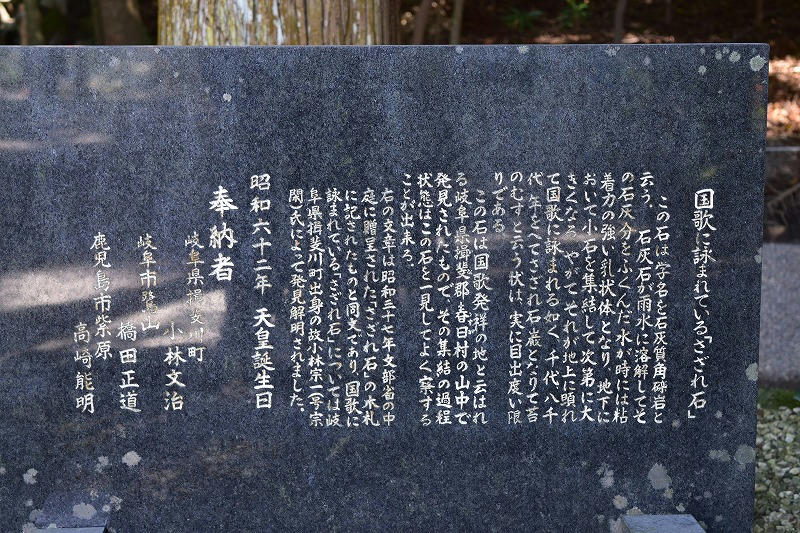 国歌に詠まれている「さざれ石」
この石は、学名を石灰質角礫岩と
云う。石灰石が雨水に溶解してそ
の石灰分をふくんだ水が時には粘
着力の強い乳状体となり、地下に
おいて小石を集結して次第に大
きくなる。やがてそれが地上に顕れ
て国歌に詠まれる如く、千代八千
代年をへてさざれ石、巌となりて苔
のむすと云う状は、実に目出度い限
りである。
この石は国歌発祥の地と云はれ
る岐阜県揖斐郡春日村の山中で
発見されたもので、その集結の過程
状態はこの石を一見してよく察する
ことが出来る。
右の文章は昭和三十七年文部省の中
庭に贈呈された「さざれ石」の木札
に記されたものと同文であり、国歌に
詠まれている「さざれ石」については岐
阜県揖斐川町出身の故小林宗一（号宗
閑）氏によって発見解明されました。
昭和六十二年 天皇誕生日
奉納者
岐阜県揖斐川町
小林文治
岐阜市鷺山
橋田正道
鹿児島市紫原
高崎能明